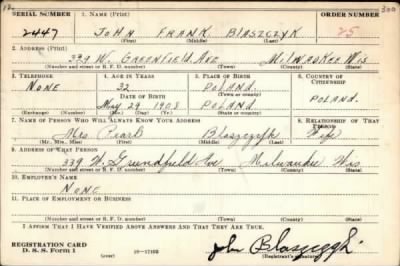 SERIAL NUMBER 1. NAME (Print) ORDER NUMBER
2447 JOHN FRANK BLASZCZYK 25
(First) (Middle) (Last)
2. ADDRESS (Print)
339 W. GREENFIELD AVE MILWAUKEE WIS
(Number and street or R. F. D. number) (Town) (County) (State)
3. TELEPHONE 4. AGE IN YEARS 5. PLACE OF BIRTH 6. COUNTRY OF CITIZENSHIP
NONE 32 POLAND
DATE OF BIRTH (Town or county)
May 29 1908 POLAND POLAND.
(Exchange) (Number) (Mo.) (Day) (Yr.) (State or country)
7. NAME OF PERSON WHO WILL ALWAYS KNOW YOUR ADDRESS 8. RELATIONSHIP OF THAT PERSON
Mrs Pearl Blaszczyk Wife
(Mr., Mrs., Miss) (First) (Middle) (Last)
9. ADDRESS OF THAT PERSON
339 W. Greendfield Ave Milwaukee Wis
(Number and street or R. F. D. number) (Town) (County) (State)
10. EMPLOYER'S NAME
NONE
11. PLACE OF EMPLOYMENT OR BUSINESS
(Number and street or R. F. D. number) (Town) (County) (State)
I AFFIRM THAT I HAVE VERIFIED ABOVE ANSWERS AND THAT THEY ARE TRUE.
REGISTRATION CARD
D. S. S. Form 1 (over) 16—17105 John Blaszczyk
(Registrant's signature)